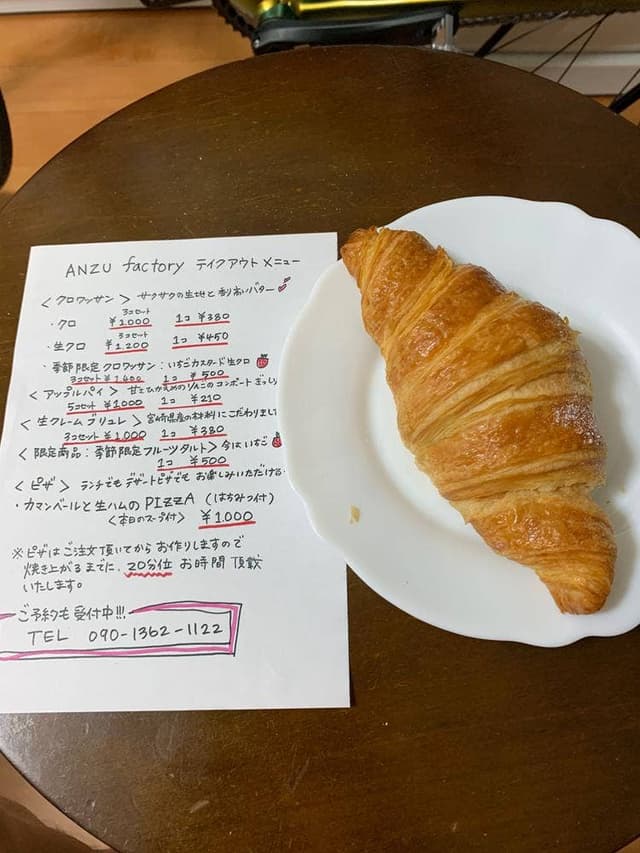 ANZU factory テイクアウトメニュー
<クロワッサン> サクサクの生地と香り高いバター
3コセット
・クロ ¥1,000 1コ ¥380
3コセット
・生クロ ¥1,200 1コ ¥450
・季節限定クロワッサン:いちごカスタード生クロ
3コセット ¥1,400 1コ ¥500
<アップルパイ> 甘さひかえめのりんごのコンポートぎっしり
5コセット ¥1,000 1コ ¥210
<生クレームブリュレ> 宮崎県産の材料にこだわりまし
3コセット ¥1,000 1コ ¥380
<限定商品:季節限定フルーツタルト> 今はいちご
1コ ¥500
<ピザ> ランチでもデザートピザでもお楽しみいただける
・カマンベールと生ハムのPIZZA (はちみつ付)
<本日のスープ付> ¥1,000
※ピザはご注文頂いてからお作りしますので
焼き上がるまでに、20分位お時間頂戴
いたします。
ご予約も受付中!!!
TEL 090-1362-1122